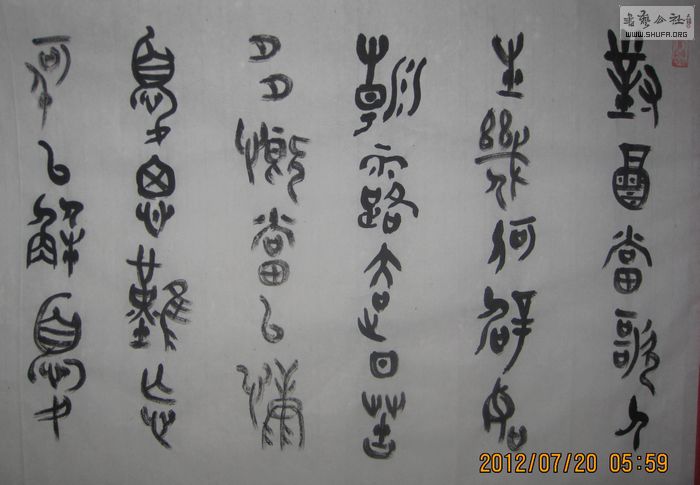 對酒當歌人
生幾何譬如
朝露去日苦
多慨當以慷
憂思難忘
何以解憂
书艺公社
WWW.SHUFA.ORG
2012/07/20 05:59